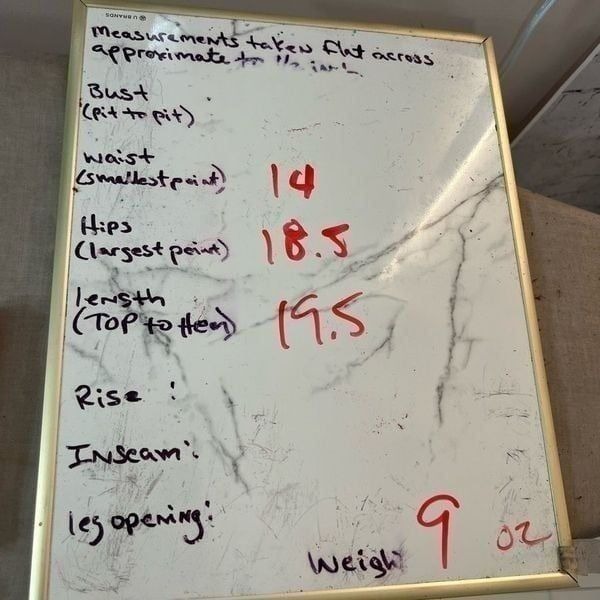 U BRANDS
Measurements taken flat across
approximate to 1/2 inch
Bust
(pit to pit)
waist
(smallest point) 14
Hips
(largest point) 18.5
length
(TOP to Hem) 19.5
Rise :
INseam:
leg opening:
Weigh 9 oz